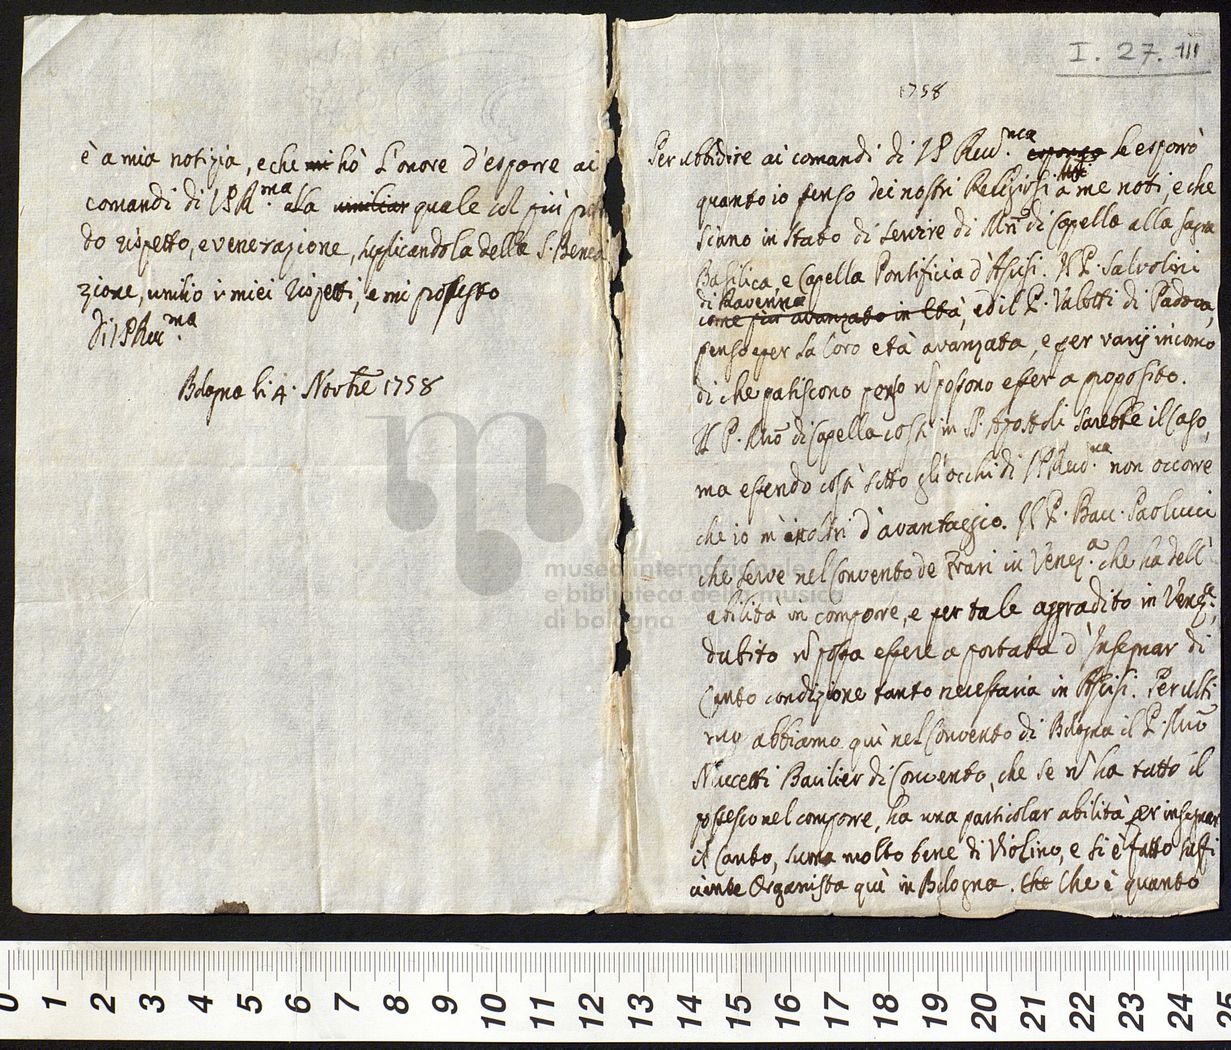 I. 27. III
1758
Per ubbidire ai comandi di V P Reud.nca esporgo le esporrò
quanto io penso dei nostri Religiosi tutti a me noti, e che
siano in stato di servire di Mro di Capella alla Sagra
Basilica, e Capella Pontificia d'Assisi. Il P. Salvolini
di Ravenna
come più avanzato in Età, ed il P. Valotti di Padova,
penso e per la loro età avanzata, e per varij incomo
di che patiscono penso ñ possono esser a proposito.
Il P. Mrõ di Capella costì in SS. Apostoli sarebbe il Caso,
ma essendo costà sotto gl'occhi di V P Reud.ma non occorre
che io m'inoltri d'avantaggio. Il P. Bacc. Paolucci
che serve nel Convento de Frari in Venez.a che ha dell'
abilità in comporre, e per tale aggradito in Venez.a,
dubito ñ possa essere a portata d'Insegnar di
Canto condizione tanto necessaria in Assisi. Per ulti
mo abbiamo quì nel Convento di Bologna il P. Mrõ
Nuccetti Bacilier di Convento, che se ñ ha tutto il
possesso nel comporre, ha una particolar abilità per insegnar
il Canto, suona molto bene di Violino, e si è fatto suffi
ciente Organista quì in Bologna. Che Che è quanto
è a mia notizia, e che mi hò l'onore d'esporre ai
comandi di V P R.ma alla umiliar quale col più profon
do rispetto, e venerazione, supplicandola della S. Bened
zione, umilio i miei rispetti, e mi protesto
Di V P Reu.ma
Bologna li 4. Novbre 1758
museo internazionale
e biblioteca della musica
di bologna
0 1 2 3 4 5 6 7 8 9 10 11 12 13 14 15 16 17 18 19 20 21 22 23 24 25